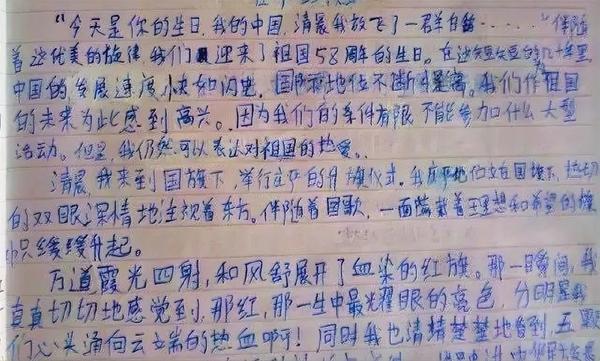 “今天是你的生日,我的中国,清晨我放飞了一群白鸽……”伴随
着这优美的旋律,我们迎来了祖国58周年的生日。在这短短的几十年里
中国的发展速度快如闪电,国际地位不断提高。我们作祖国
的未来为此感到高兴。因为我们的条件有限,不能参加什么大型
活动。但是,我仍然可以表达对祖国的热爱。
清晨,我来到国旗下,举行庄严的升旗仪式。我庄严地伫立在国旗下,热切
的双眼深情地注视着东方。伴随着国歌,一面满载着理想和希望的旗
帜缓缓升起。
万道霞光四射,和风舒展开了血染的红旗。那一瞬间,我
真真切切地感觉到,那红,那一生中最光耀眼的亮色,分明是我
们心头涌向云端的热血啊!同时我也清清楚楚地看到,五颗